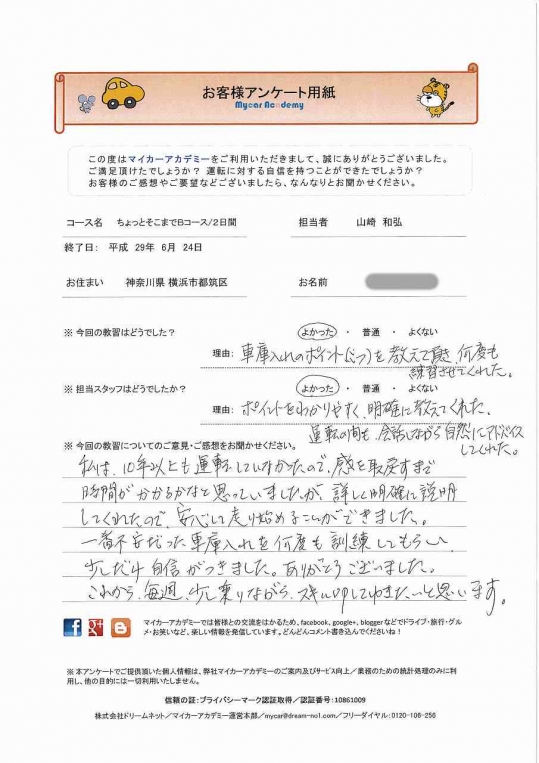 お客様アンケート用紙
Mycar Academy
この度はマイカーアカデミーをご利用いただきまして、誠にありがとうございました。
ご満足頂けたでしょうか？ 運転に対する自信を持つことができたでしょうか？
お客様のご感想やご要望などございましたら、なんなりとお聞かせください。
コース名 ちょっとそこまでBコース/2日間 担当者 山崎 和弘
終了日： 平成 29年 6月 24日
お住まい 神奈川県 横浜市都筑区 お名前
※ 今回の教習はどうでした？ よかった ・ 普通 ・ よくない
理由： 車庫入れのポイント(こつ)を教えて頂き、何度も
練習させてくれた。
※ 担当スタッフはどうでしたか？ よかった ・ 普通 ・ よくない
理由： ポイントをわかりやすく、明確に教えてくれた。
運転の間も、会話しながら自然にアドバイス
してくれた。
※ 今回の教習についてのご意見・ご感想をお聞かせください。
私は、10年以上も運転していなかったので、感を取戻すまで
時間がかかるかなと思っていましたが、詳しく明確に説明
してくれたので、安心して走り始めることができました。
一番不安だった車庫入れを何度も訓練してもらい、
少しだけ自信がつきました。ありがとうございました。
これから、毎週、少し乗りながら、スキルUPしてゆきたいと思います。
マイカーアカデミーでは皆様との交流をはかるため、facebook、google+、bloggerなどでドライブ・旅行・グル
メ・お笑いなど、楽しい情報を発信しています。どんどんコメント書き込んでくださいね！
※ 本アンケートでご提供頂いた個人情報は、弊社マイカーアカデミーのご案内及びサービス向上／業務のための統計処理のみに利
用し、他の目的には一切利用いたしません。
信頼の証：プライバシーマーク認証取得／認証番号：10861009
株式会社ドリームネット／マイカーアカデミー運営本部／mycar@dream-no1.com／フリーダイヤル：0120-106-256